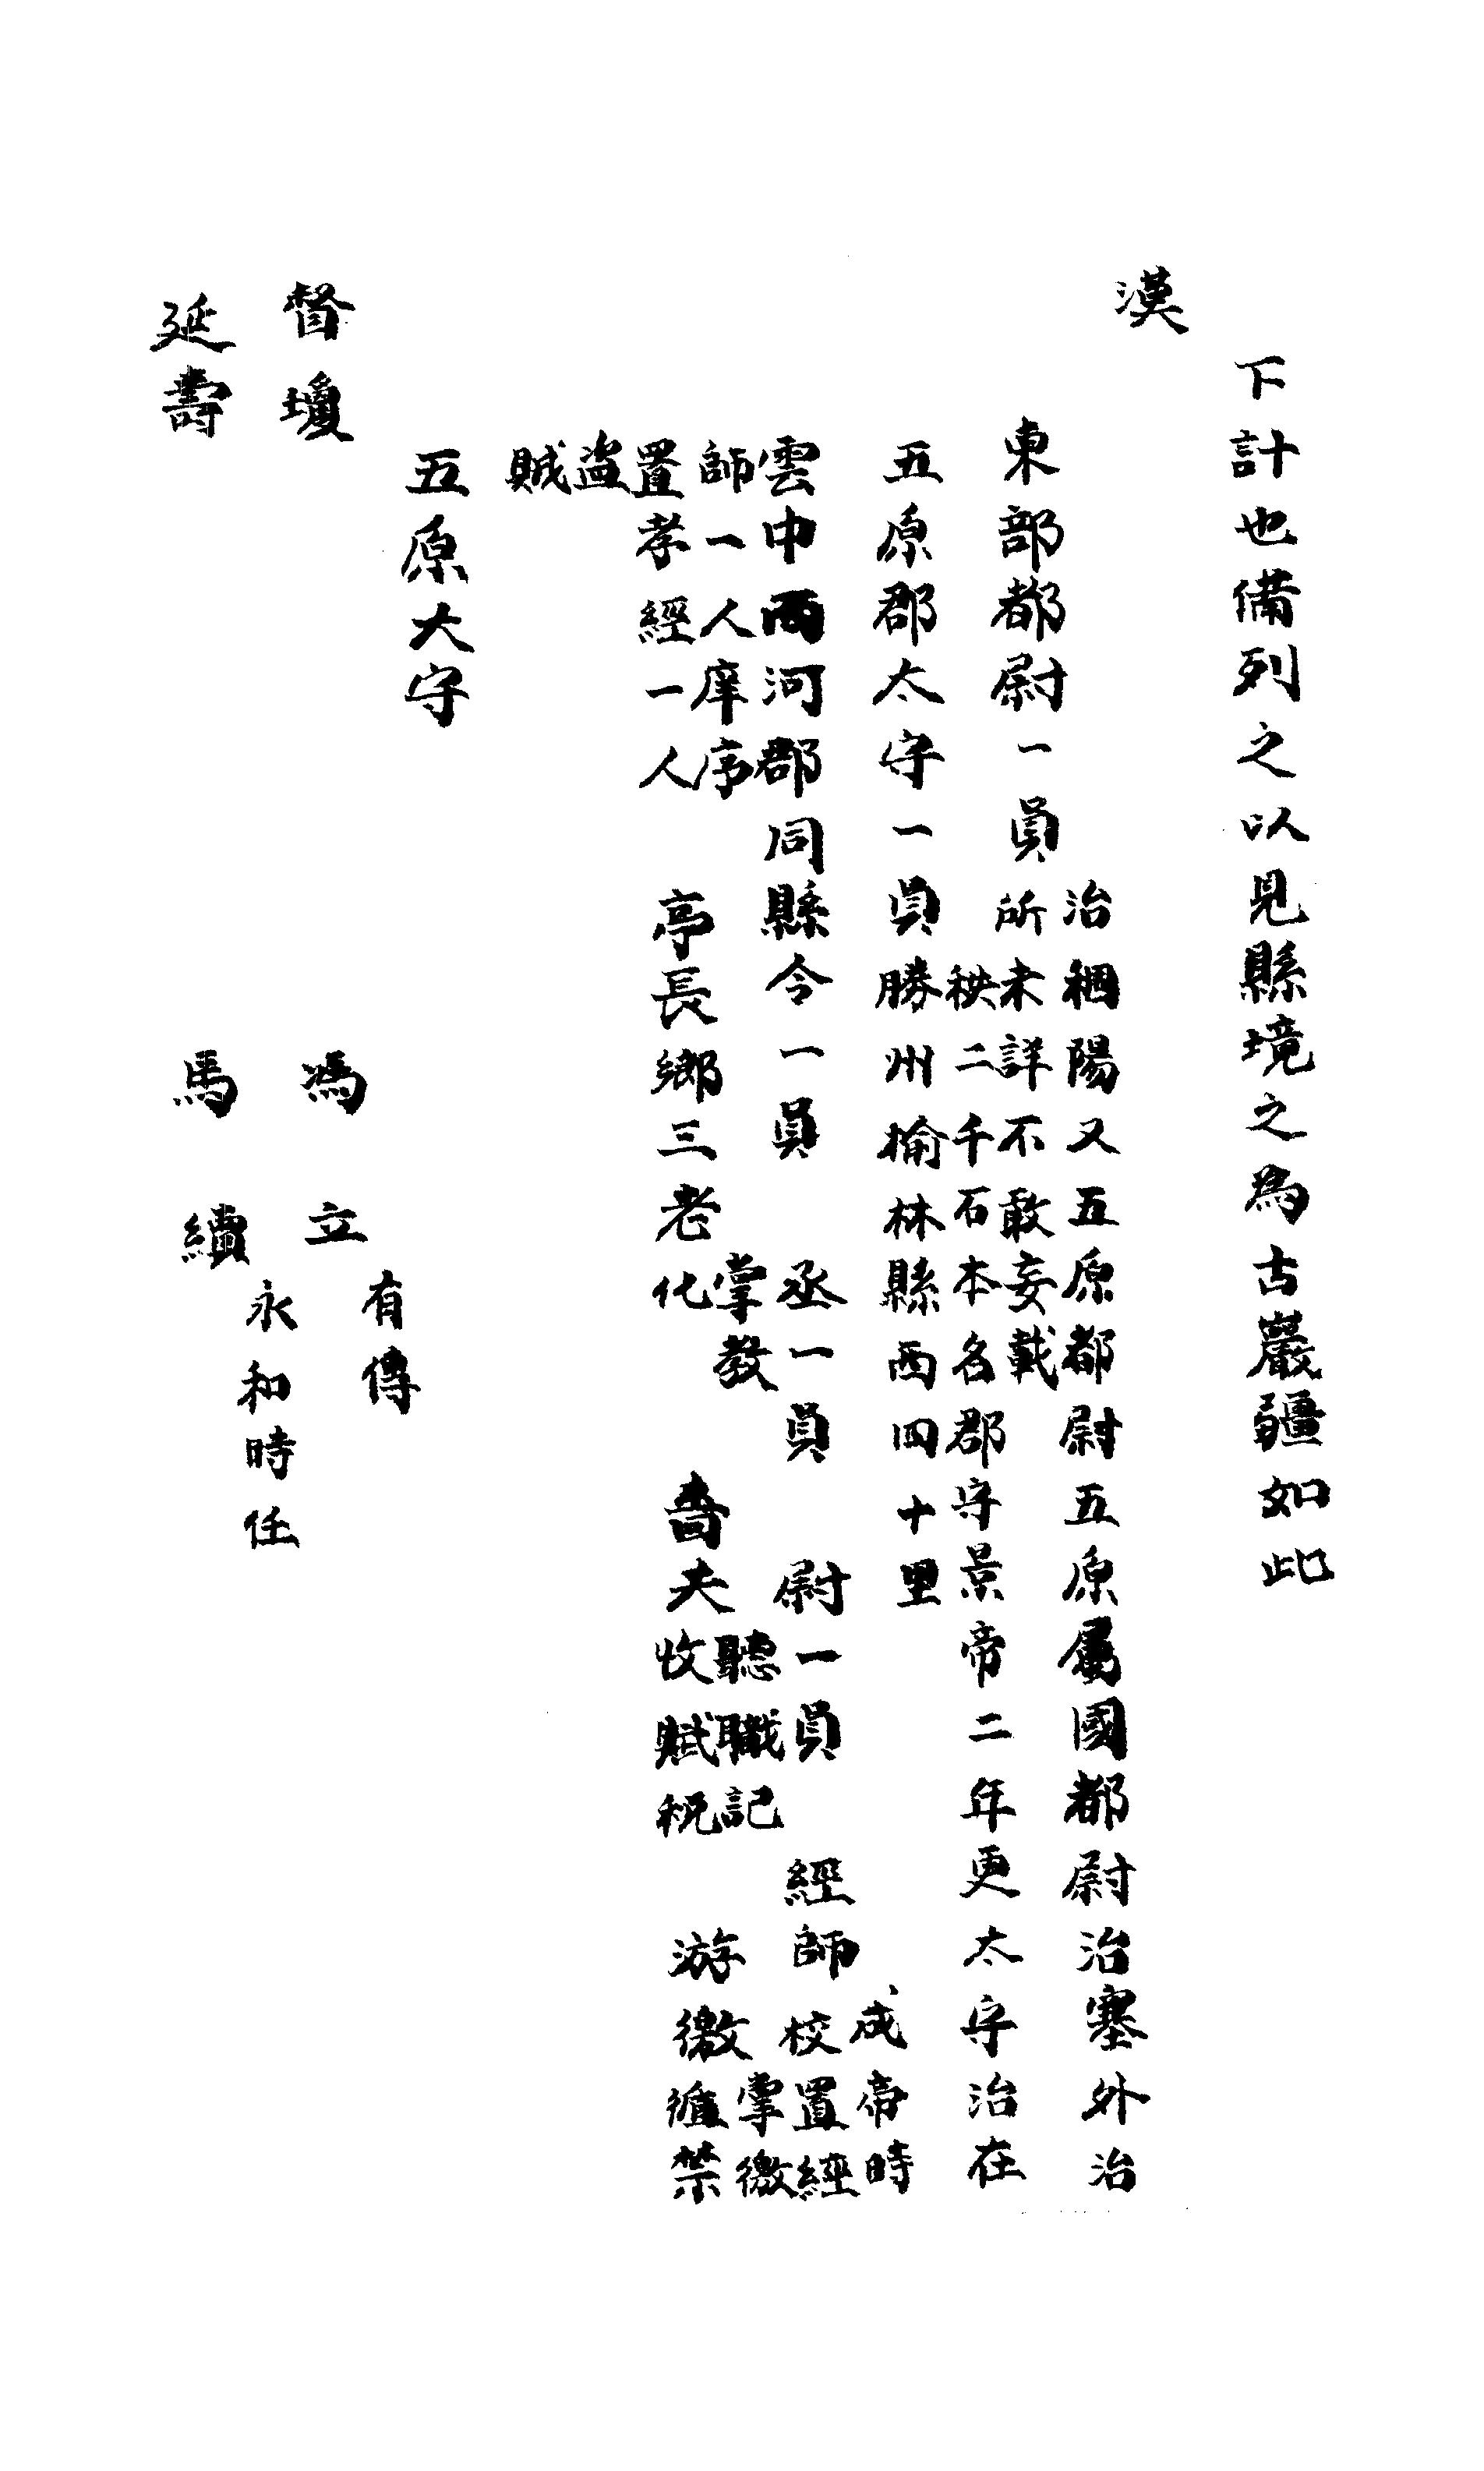 下計也備列之以見縣境之為古巖疆如此
漢
東部都尉一員治稒陽又五原都尉五原屬國都尉治塞外治
所未詳不敢妄載
五原郡太守一員秩二千石本名郡守景帝二年更太守治在
勝州榆林縣西四十里
雲中西河郡同縣令一員　丞一員　尉一員　經師成帝時
校置經
師一人庠序
置孝經一人　亭長鄉三老掌教
化　嗇夫聽職記
收賦稅　游徼掌徼
循禁
盜
賊
五原大守
督瓊　馮立有傳
延壽　馬續永和時任